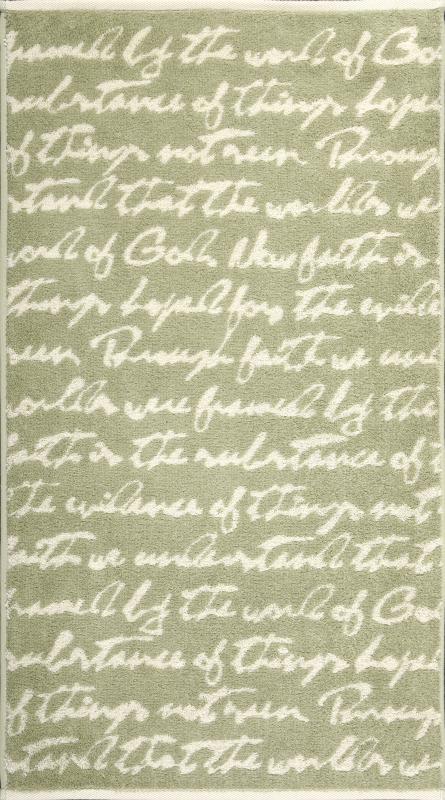 framed by the word of Go
substance of things hope
of things not seen Throug
stand that the worlds we
word of God Now faith is
things hoped for the evide
seen Through faith we und
worlds were framed by the
faith is the substance of t
the evidence of things not
faith we understand that t
framed by the word of Go
substance of things hope
of things not seen Throug
stand that the worlds we